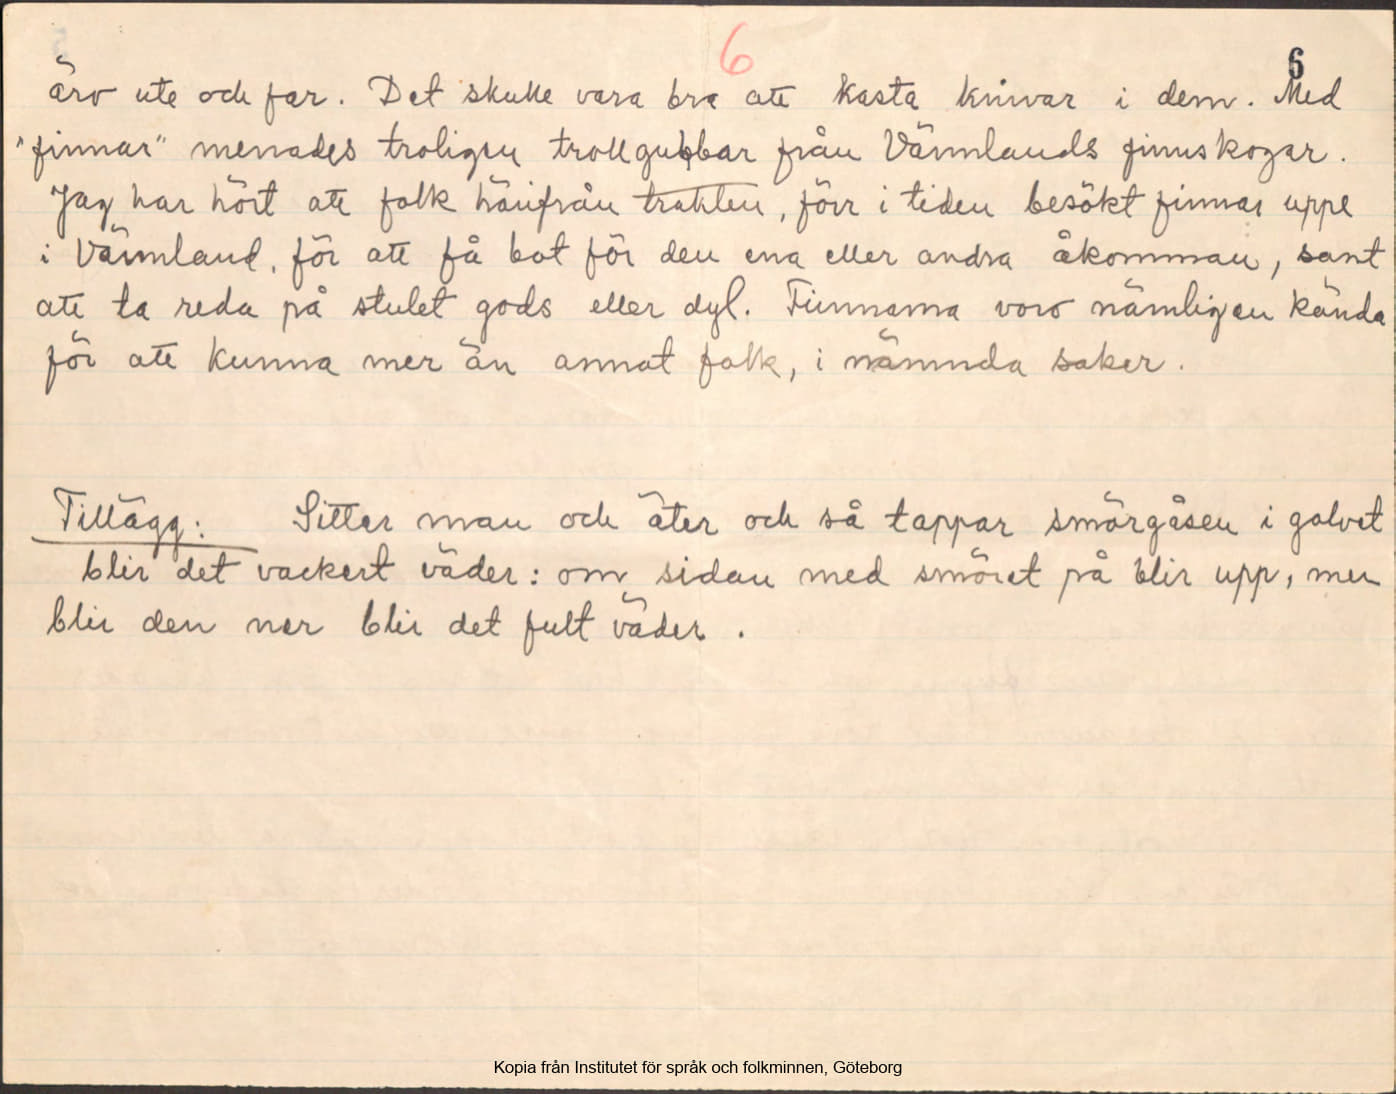 6
6
äro ute och far. Det skulle vara bra att kasta knivar i dem. Med
"finnar" menades troligen trollgubbar från Värmlands finnskogar.
Jag har hört att folk härifrån trakten, förr i tiden besökt finnar uppe
i Värmland, för att få bot för den ena eller andra åkomman, samt
att ta reda på stulet gods eller dyl. Finnarna voro nämligen kända
för att kunna mer än annat folk, i nämnda saker.
Tillägg: Sitter man och äter och så tappar smörgåsen i golvet
blir det vackert väder: om sidan med smöret på blir upp, men
blir den ner blir det fult väder.
Kopia från Institutet för språk och folkminnen, Göteborg